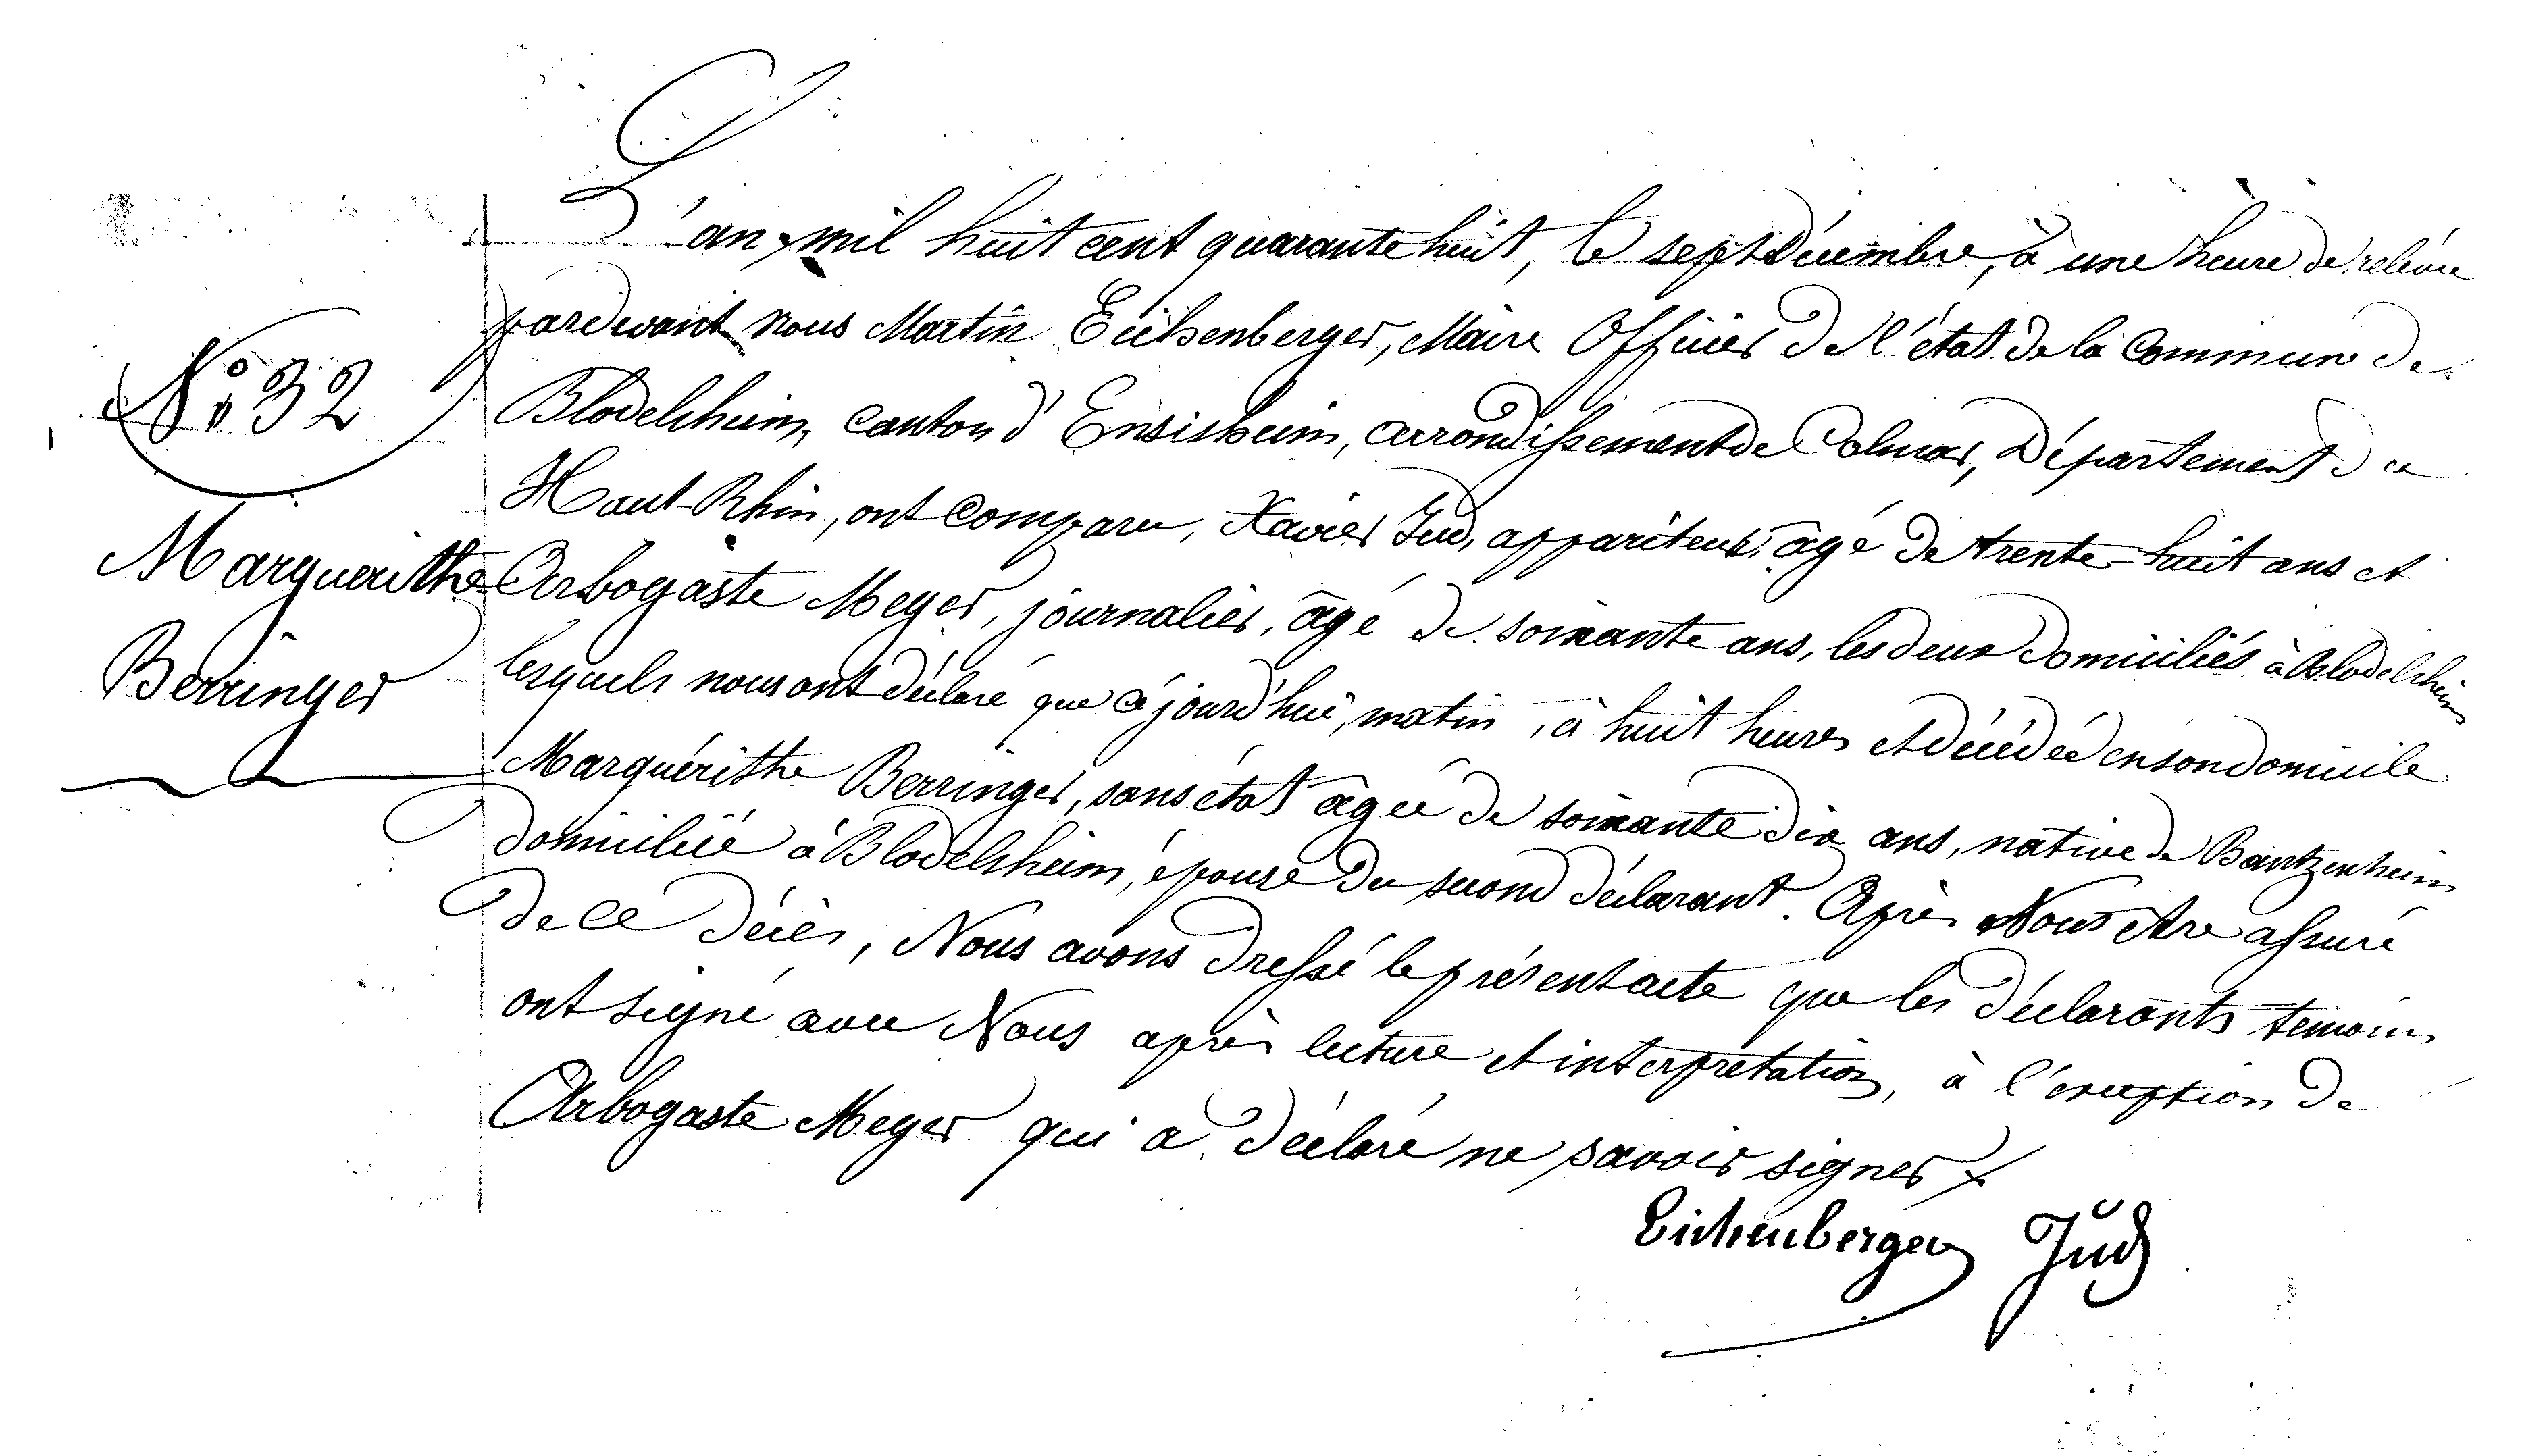 N° 32
Marguerithe
Berringer
L'an mil huit cent quarante huit, le sept Décembre, à une heure de relevée
pardevant nous Martin Eichenberger, Maire Officier de l'état de la Commune de
Blodelsheim, canton d'Ensisheim, arrondissement de Colmar, Département du
Haut-Rhin, ont comparu, Xavier Jud, appariteur, âgé de trente-huit ans et
Arbogaste Meyer, journalier, âgé de soixante ans, les deux domiciliés à Blodelsheim
lesquels nous ont déclaré que cejourd'hui, matin, à huit heures est décédée en son domicile
Marguérithe Berringer, sans état âgée de soixante dix ans, native de Bantzenheim
domiciliée à Blodelsheim, épouse du second déclarant. Après Nous être assuré
de ce décès, Nous avons dressé le présent acte que les déclarants temoins
ont signé avec Nous après lecture et interpretation, à l'exception de
Arbogaste Meyer qui a déclaré ne savoir signer
Eichenberger Jud